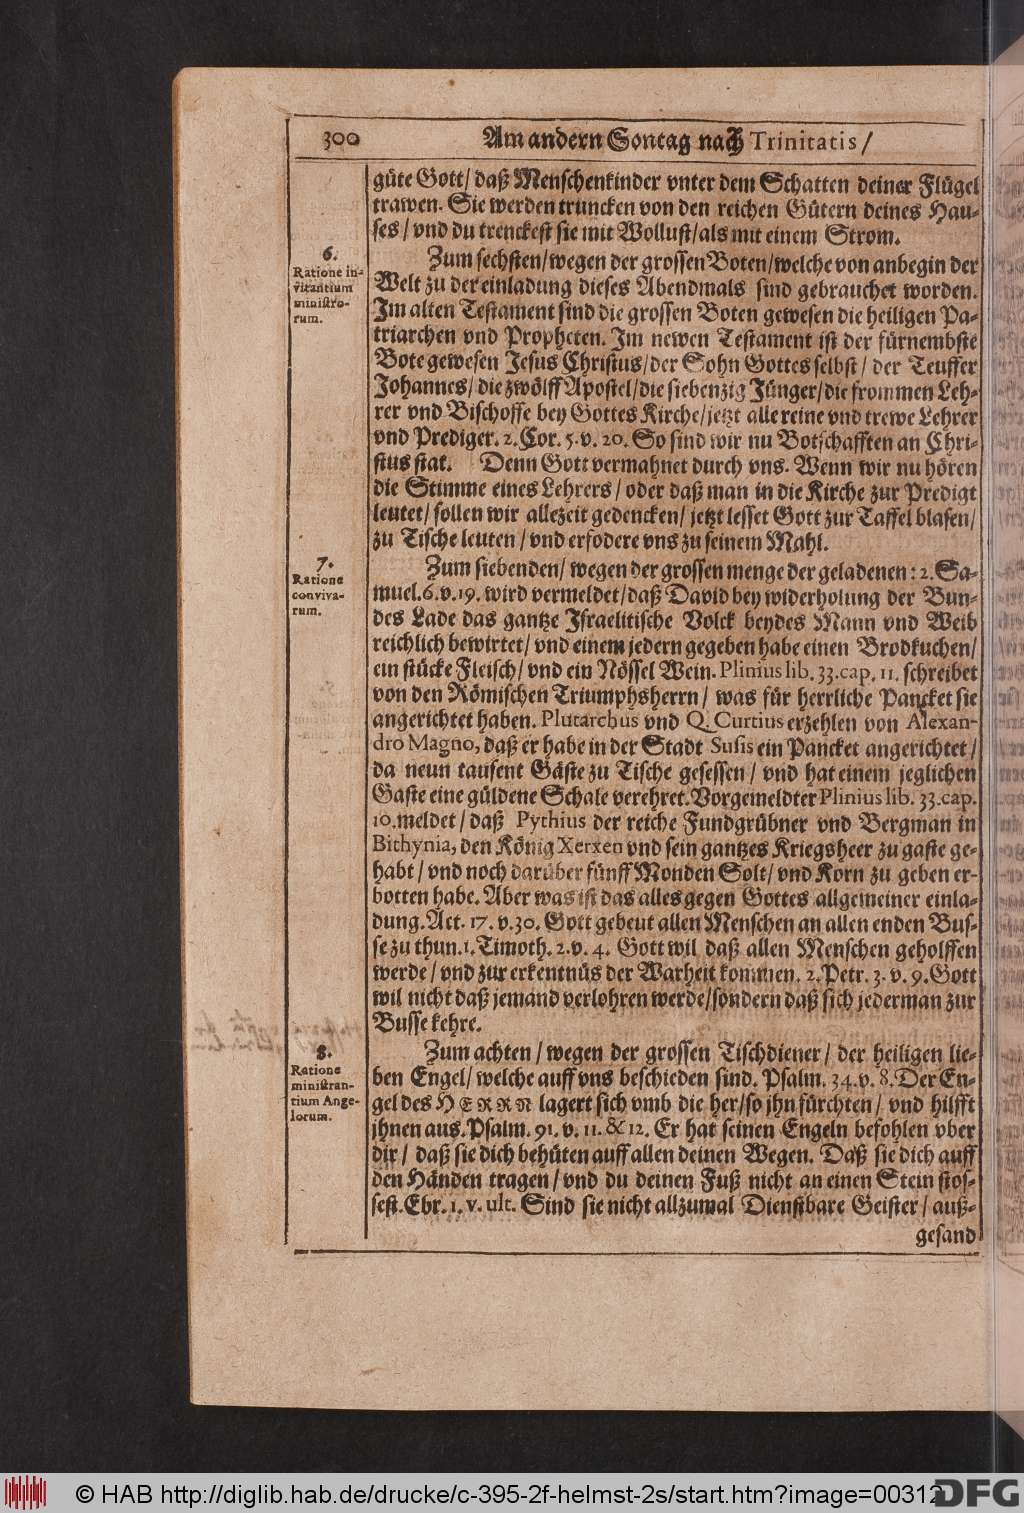 300 Am andern Sontag nach Trinitatis/
güte Gott/ daß Menschenkinder vnter dem Schatten deiner Flügel
trawen. Sie werden truncken von den reichen Gütern deines Hau-
ses/ vnd du trenckest sie mit Wollust/ als mit einem Strom.
6.
Ratione in-
vitantium
ministro-
rum.
Zum sechsten/ wegen der grossen Boten/ welche von anbegin der
Welt zu der einladung dieses Abendmals sind gebrauchet worden.
Im alten Testament sind die grossen Boten gewesen die heiligen Pa-
triarchen vnd Propheten. Im newen Testament ist der fürnembste
Bote gewesen Jesus Christus/ der Sohn Gottes selbst/ der Teuffer
Johannes/ die zwölff Apostel/ die siebenzig Jünger/ die frommen Leh-
rer vnd Bischoffe bey Gottes Kirche/ jetzt alle reine vnd trewe Lehrer
vnd Prediger. 2. Cor. 5. v. 20. So sind wir nu Botschafften an Chri-
stius stat. Denn Gott vermahnet durch vns. Wenn wir nu hören
die Stimme eines Lehrers/ oder daß man in die Kirche zur Predigt
leutet/ sollen wir allezeit gedencken/ jetzt lesset Gott zur Taffel blasen/
zu Tische leuten/ vnd erfodere vns zu seinem Mahl.
7.
Ratione
conviva-
rum.
Zum siebenden/ wegen der grossen menge der geladenen: 2. Sa-
muel. 6. v. 19. wird vermeldet/ daß David bey widerholung der Bun-
des Lade das gantze Israelitische Volck beydes Mann vnd Weib
reichlich bewirtet/ vnd einem jedern gegeben habe einen Brodkuchen/
ein stücke Fleisch/ vnd ein Nössel Wein. Plinius lib. 33. cap. 11. schreibet
von den Römischen Triumphsherrn/ was für herrliche Pancket sie
angerichtet haben. Plutarchus vnd Q. Curtius erzehlen von Alexan-
dro Magno, daß er habe in der Stadt Susis ein Pancket angerichtet/
da neun tausent Gäste zu Tische gesessen/ vnd hat einem jeglichen
Gaste eine güldene Schale verehret. Vorgemeldter Plinius lib. 33. cap.
10. meldet/ daß Pythius der reiche Fundgrübner vnd Bergman in
Bithynia, den König Xerxen vnd sein gantzes Kriegsheer zu gaste ge-
habt/ vnd noch darüber fünff Monden Solt/ vnd Korn zu geben er-
botten habe. Aber was ist das alles gegen Gottes allgemeiner einla-
dung. Act. 17. v. 30. Gott gebeut allen Menschen an allen enden Bus-
se zu thun. 1. Timoth. 2. v. 4. Gott wil daß allen Menschen geholffen
werde/ vnd zur erkentnüs der Warheit kommen. 2. Petr. 3. v. 9. Gott
wil nicht daß jemand verlohren werde/ sondern daß sich jederman zur
Busse kehre.
8.
Ratione
ministran-
tium Ange-
lorum.
Zum achten/ wegen der grossen Tischdiener/ der heiligen lie-
ben Engel/ welche auff vns beschieden sind. Psalm. 34. v. 8. Der En-
gel des HERRN lagert sich vmb die her/ so jhn fürchten/ vnd hilfft
jhnen aus. Psalm. 91. v. 11. & 12. Er hat seinen Engeln befohlen vber
dir/ daß sie dich behüten auff allen deinen Wegen. Daß sie dich auff
den Händen tragen/ vnd du deinen Fuß nicht an einen Stein stos-
sest. Ebr. 1. v. ult. Sind sie nicht allzumal Dienstbare Geister/ auß-
gesand
© HAB http://diglib.hab.de/drucke/c-395-2f-helmst-2s/start.htm?image=00312
DFG